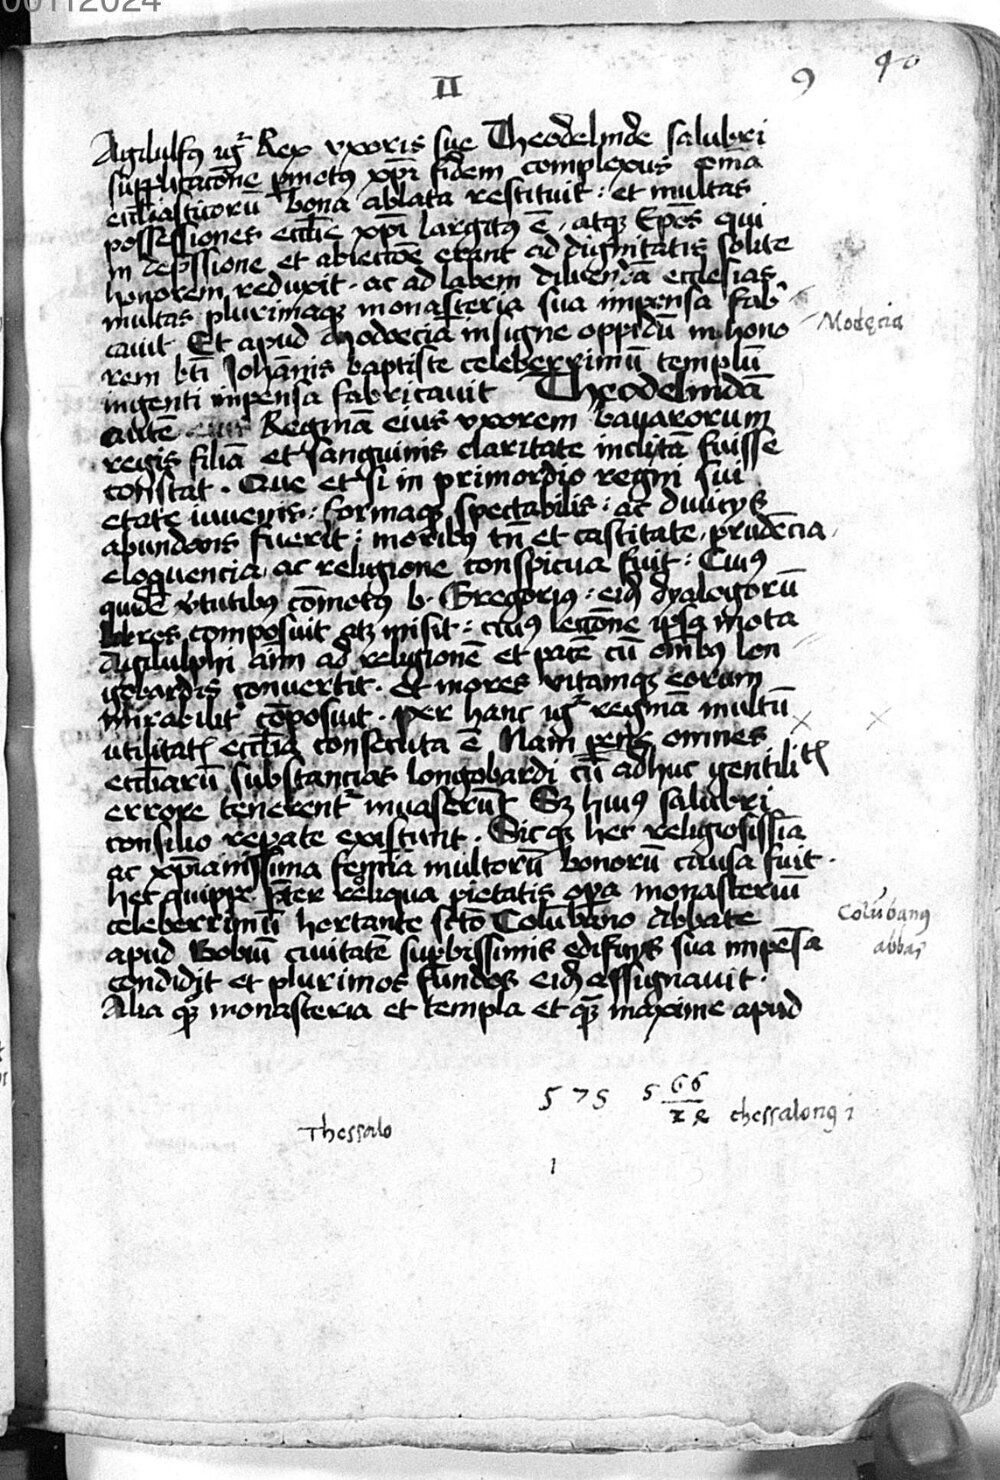 00112024
II
9 40
Agilulfꝯ igr̃ Rex vxoris sue Theodelinde salubri
supplicacōne p̱motꝯ xp̄i fidem complexus om̄a
eccl̄iasticoru̅ bona ablata restituit : et multas
possessiones eccl̄ie xp̄i largitꝯ ē , atqꝫ Ep̄os qui
in dep̄ssione et abiectōe erant ad dignitatis solite
honorem reduxit . ac ad labem diluenda ecclesias
multas plurimaqꝫ monasteria sua impensa fab
cauit Et apud Modoecia insigne oppidū in hono
rem bt̄i Johānis baptiste celeberrimū templū
ingenti impensa fabricauit Theodelindā
autē eius Reginā eius vxorem bauarorum
regis filiā et sanguinis claritate inclitā fuisse
constat . Que et si in primordio regni sui
etate iuuenis : formaqꝫ spectabilis : ac diuicijs
abundans fuerit : moribꝯ tn̄ et castitate , prudēcia ,
eloquencia , ac religione conspicua fuit : Cuiꝯ
quidē v̄tutibꝯ cōmotꝯ b. Gregoriꝯ : eid̄ dyalogorū
libros composuit atqꝫ misit : cuiꝯ lectōne ip̄a mota
Agilulphi aīm ad religionē et pacē cū om̄ibꝯ lon
gobardis conuertit . et mores vitamqꝫ eorum
mirabilit̄ cōposuit . per hanc igr̃ reginā multū
utilitatꝭ eccl̄ia consecuta ē Nam pene omnes
eccl̄iarū substancias longobardi cū adhuc gentilitꝭ
errore tenerent᷑ inuaserūt Sꝫ huiꝯ salubri
consilio rep̱ate existunt . Sicqꝫ hec religiosissīa
ac xp̄ianissima femīa multorū bonorū causa fuit .
hec quippe p̄ter reliqua pietatis op̱a monasteriū
celeberrimū hortante sc̄to Columbano Abbate
apud Bobiū ciuitatē sup̱bissimis edificijs sua impēsa
condidit et plurimos fundos eid̄ assignauit .
Alia qꝫ monasteria et templa et qꝫ maxime apud
Modecia
Colūbanꝯ
abbas
575 566
Thessalo
thessalonꝯ i
1